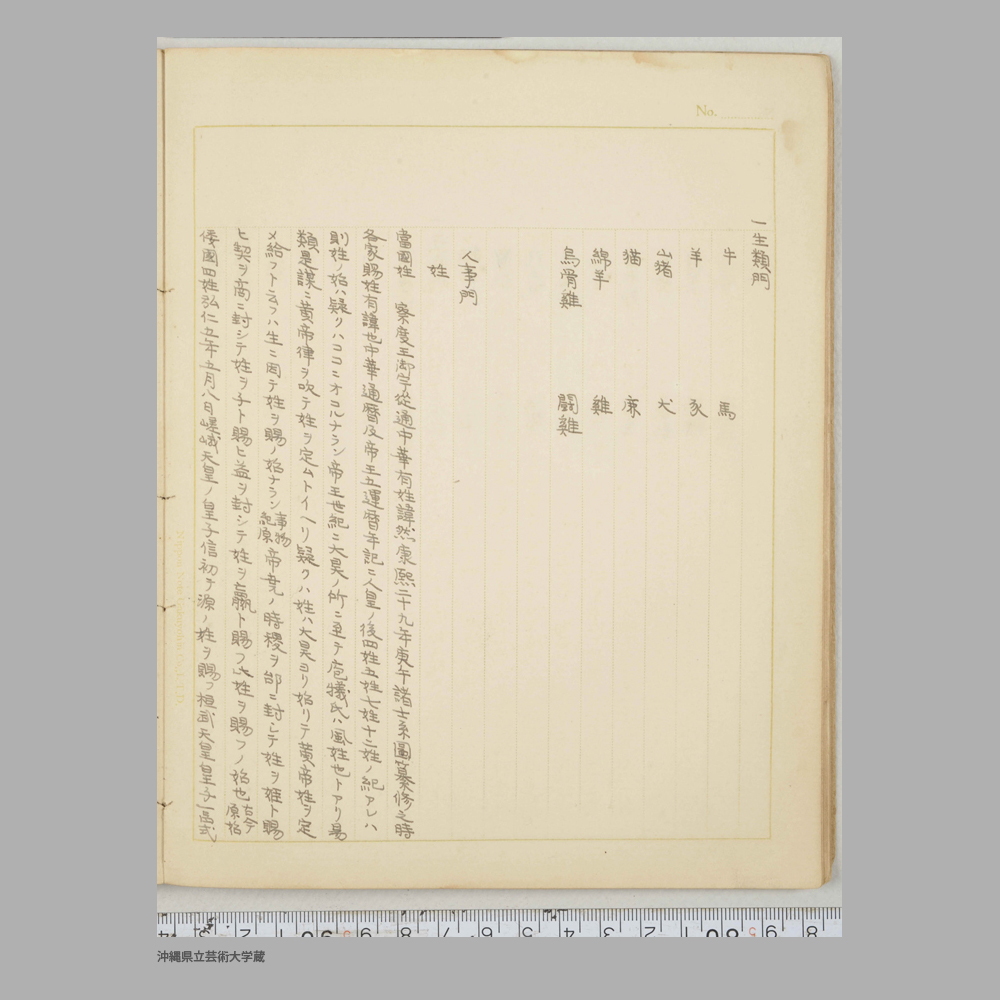 No.
一生類門
牛 馬
羊 豕
山猪 犬
猫 麻
綿羊 雞
烏骨雞 闘雞
人事門
姓
當國姓 察度王御宇從通中華有姓諱然康熙二十九年庚午諸士系圖纂修之時
各家賜姓有諱也中華通暦及帝王五運暦年記ニ人皇ノ後四姓五姓七姓十二姓ノ紀アレハ
則姓ノ始ハ疑クハココニオコルナラン帝王世紀ニ大昊ノ所ニ至テ庖犠氏ハ風姓也トアリ易
類是謀ニ黄帝律ヲ吹テ姓ヲ定ムトイヘリ疑クハ姓ハ大昊ヨリ始リテ黄帝姓ヲ定
メ給フト云フハ生ニ因テ姓ヲ賜ノ始ナラン事物紀原帝堯ノ時稷ヲ邰ニ封シテ姓ヲ姫ト賜
ヒ契ヲ商ニ封シテ姓ヲ子ト賜ヒ益ヲ封シテ姓ヲ嬴ト賜フ此姓ヲ賜フノ始也古今原始
倭國四姓弘仁五年五月八日嵯峨天皇ノ皇子信初テ源ノ姓ヲ賜フ桓武天皇皇子一品式
沖縄県立芸術大学蔵